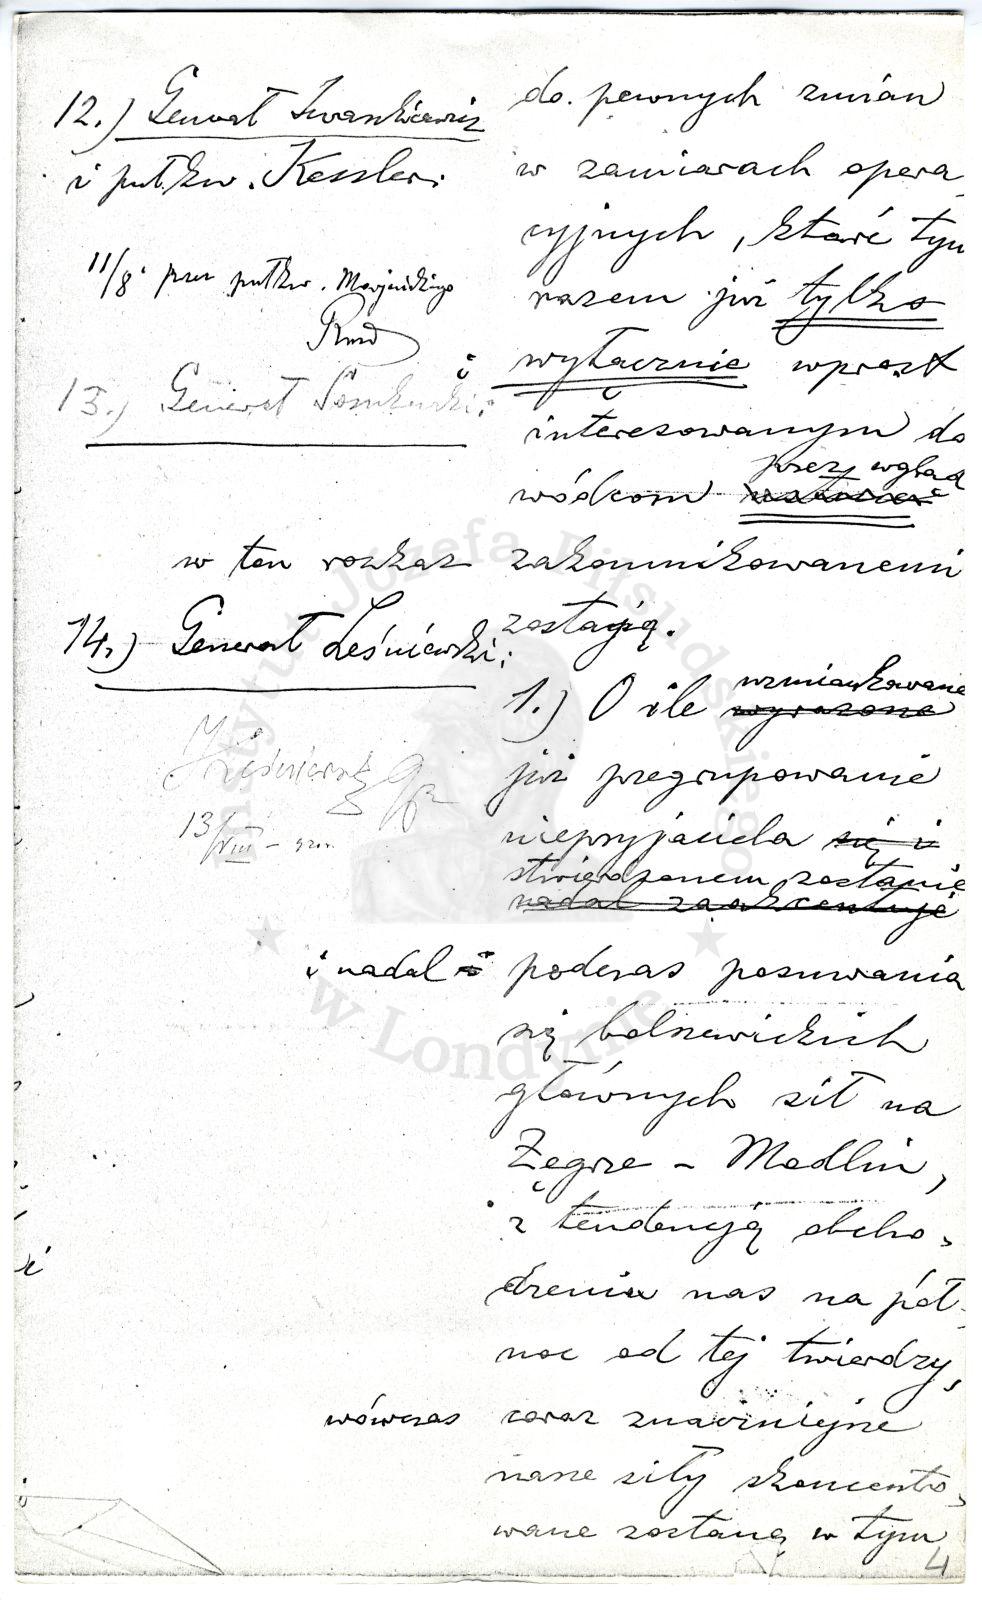 12.) Generał Iwaszkiewicz
i pułkw. Kessler:
11/8 przez pułkw.
13.) Generał Sosnkowski:
14.) Generał Leśniewski:
Leśniewski
13/VIII –
do pewnych zmian
w zamiarach opera-
cyjnych, które tym
razem już tylko
i wyłącznie wprost
interesowanym do
wódcom przez wgląd
w ten rozkaz zakomunikowanemi
zostają.
1.) O ile wzmiankowane
wyrażone
już przegrupowanie
nieprzyjaciela się i
stwierdzonem zostanie
nadal zaakcentuje
i nadal podczas posuwania
się bolszewickich
głównych sił na
Zegrze – Modlin,
z tendencją obcho-
dzenia nas na pół-
noc od tej twierdzy,
wówczas coraz znaczniejsze
nasze siły skoncentro-
wane zostaną w tym
4
Instytut Józefa Piłsudskiego
w Londynie